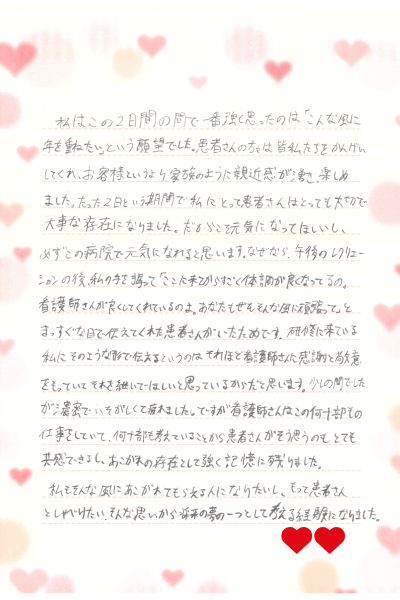 私はこの2日間の間で一番強く思ったのは「こんな風に
年を重ねたい」という願望でした。患者さんの方々は皆私たちをかんげい
してくれ、お客様というより家族のように親近感が湧き、楽しめ
ました。たった2日という期間で私にとって患者さんはとっても大切で
大事な存在になりました。だからこそ元気になってほしいし、
必ずこの病院で元気になれると思います。なぜなら、午後のレクリエー
ションの後、私の手を握って「ここに来てからすごく体調が良くなってるの。
看護師さんが良くしてくれているのよ。あなたもぜひそんな風に頑張って」と
まっすぐな目で伝えてくれた患者さんがいたためです。研修に来ている
私にそのような形で伝えるというのはそれほど看護師さんに感謝と敬意
をもっていてそれを継いでほしいと思っているからだと思います。少しの間でした
が濃密でいそがしくて疲れました。ですが看護師さんはこの何十部もの
仕事をしていて、何十部も考えていることから患者さんがそう思うのもとても
共感できるし、あこがれの存在として強く記憶に残りました。
私もそんな風にあこがれてもらえる人になりたいし、もっと患者さん
としゃべりたい、そんな思いから将来の夢の一つとして考える経験になりました。